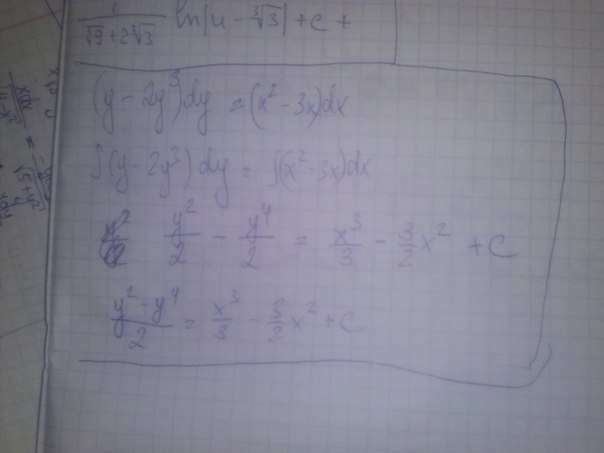 1/(∛9+2∛3) ln|u - ∛3| + C +
(y - 2y³)dy = (x² - 3x)dx
∫(y - 2y³)dy = ∫(x² - 3x)dx
y²/2 - y⁴/2 = x³/3 - 3/2 x² + C
(y² - y⁴)/2 = x³/3 - 3/2 x² + C